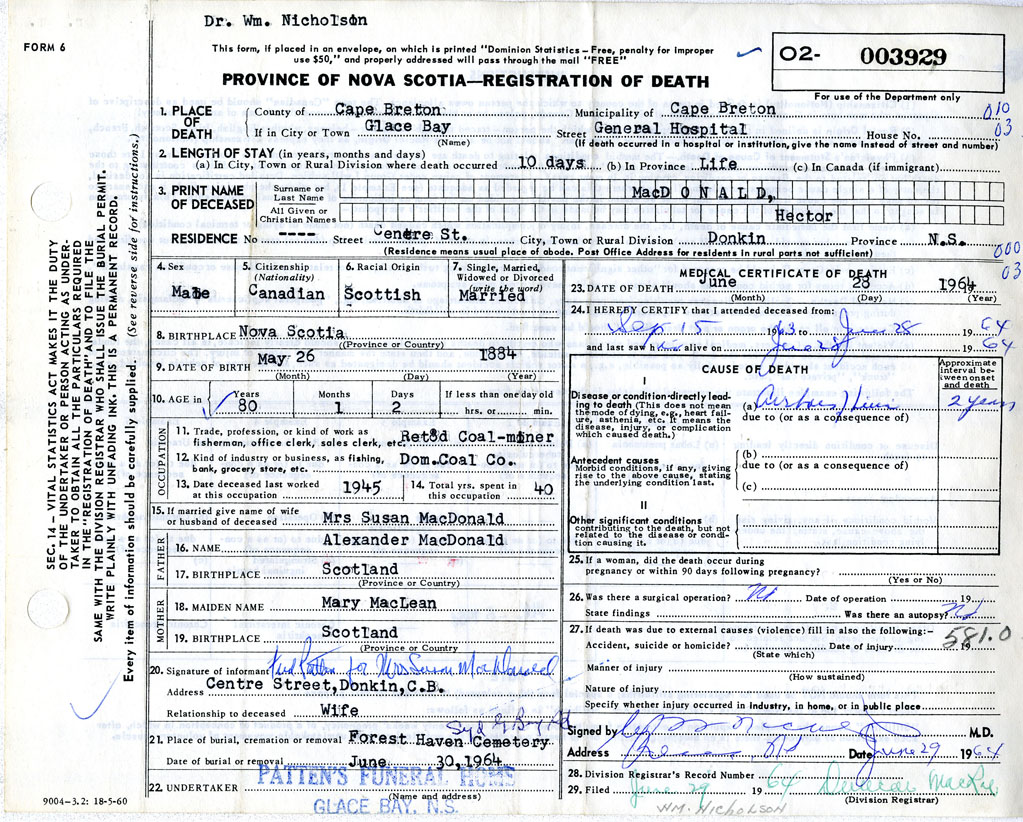 Dr. Wm. Nicholson
FORM 6
This form, if placed in an envelope, on which is printed "Dominion Statistics – Free, penalty for improper
use $50," and properly addressed will pass through the mail "FREE"
PROVINCE OF NOVA SCOTIA—REGISTRATION OF DEATH
O2- 003929
For use of the Department only
1. PLACE OF DEATH
County of Cape Breton Municipality of Cape Breton 010
If in City or Town Glace Bay Street General Hospital House No. 03
(Name) (If death occurred in a hospital or institution, give the name instead of street and number)
2. LENGTH OF STAY (in years, months and days)
(a) In City, Town or Rural Division where death occurred 10 days (b) In Province Life (c) In Canada (if immigrant)
3. PRINT NAME OF DECEASED
Surname or Last Name MacDONALD,
All Given or Christian Names Hector
RESIDENCE No ---- Street Centre St. City, Town or Rural Division Donkin Province N.S.
(Residence means usual place of abode. Post Office Address for residents in rural parts not sufficient)
000
03
SEC. 14 – VITAL STATISTICS ACT MAKES IT THE DUTY
OF THE UNDERTAKER OR PERSON ACTING AS UNDER-
TAKER TO OBTAIN ALL THE PARTICULARS REQUIRED
IN THE "REGISTRATION OF DEATH" AND TO FILE THE
SAME WITH THE DIVISION REGISTRAR WHO SHALL ISSUE THE BURIAL PERMIT.
WRITE PLAINLY WITH UNFADING INK. THIS IS A PERMANENT RECORD.
Every item of information should be carefully supplied. (See reverse side for instructions.)
4. Sex Male
5. Citizenship (Nationality) Canadian
6. Racial Origin Scottish
7. Single, Married, Widowed or Divorced (write the word) Married
8. BIRTHPLACE Nova Scotia
(Province or Country)
9. DATE OF BIRTH May 26 1884
(Month) (Day) (Year)
10. AGE in Years 80 Months 1 Days 2 If less than one day old hrs. or min.
OCCUPATION
11. Trade, profession, or kind of work as
fisherman, office clerk, sales clerk, etc. Ret'd Coal-miner
12. Kind of industry or business, as fishing,
bank, grocery store, etc. Dom.Coal Co.
13. Date deceased last worked at this occupation 1945
14. Total yrs. spent in this occupation 40
15. If married give name of wife
or husband of deceased Mrs Susan MacDonald
FATHER
16. NAME Alexander MacDonald
17. BIRTHPLACE Scotland
(Province or Country)
MOTHER
18. MAIDEN NAME Mary MacLean
19. BIRTHPLACE Scotland
(Province or Country)
20. Signature of informant Fred Patten for Mrs Susan MacDonald
Address Centre Street, Donkin, C.B.
Relationship to deceased Wife
21. Place of burial, cremation or removal Forest Haven Cemetery
Date of burial or removal June 30, 1964
22. UNDERTAKER PATTEN'S FUNERAL HOME
(Name and address)
GLACE BAY, N.S.
9004–3.2: 18-5-60
MEDICAL CERTIFICATE OF DEATH
23. DATE OF DEATH June 28 1964
(Month) (Day) (Year)
24. I HEREBY CERTIFY that I attended deceased from:
Sep 15 1963 to June 28 1964
and last saw him alive on June 28 1964
CAUSE OF DEATH
Approximate interval between onset and death
I
Disease or condition directly lead-
ing to death (This does not mean
the mode of dying, e.g., heart fail-
ure, asthenia, etc. It means the
disease, injury, or complication
which caused death.)
(a) Liver 2 years
due to (or as a consequence of)
Antecedent causes
Morbid conditions, if any, giving
rise to the above cause, stating
the underlying condition last.
(b)
due to (or as a consequence of)
(c)
II
Other significant conditions
contributing to the death, but not
related to the disease or condi-
tion causing it.
25. If a woman, did the death occur during
pregnancy or within 90 days following pregnancy?
(Yes or No)
26. Was there a surgical operation? No Date of operation 19
State findings Was there an autopsy? No
27. If death was due to external causes (violence) fill in also the following:– 581.0
Accident, suicide or homicide? Date of injury 19
(State which)
Manner of injury
(How sustained)
Nature of injury
Specify whether injury occurred in industry, in home, or in public place
Signed by M.D.
Address N.S Date June 29 1964
28. Division Registrar's Record Number 64
29. Filed June 29 19 64
(Division Registrar)
WM. NICHOLSON